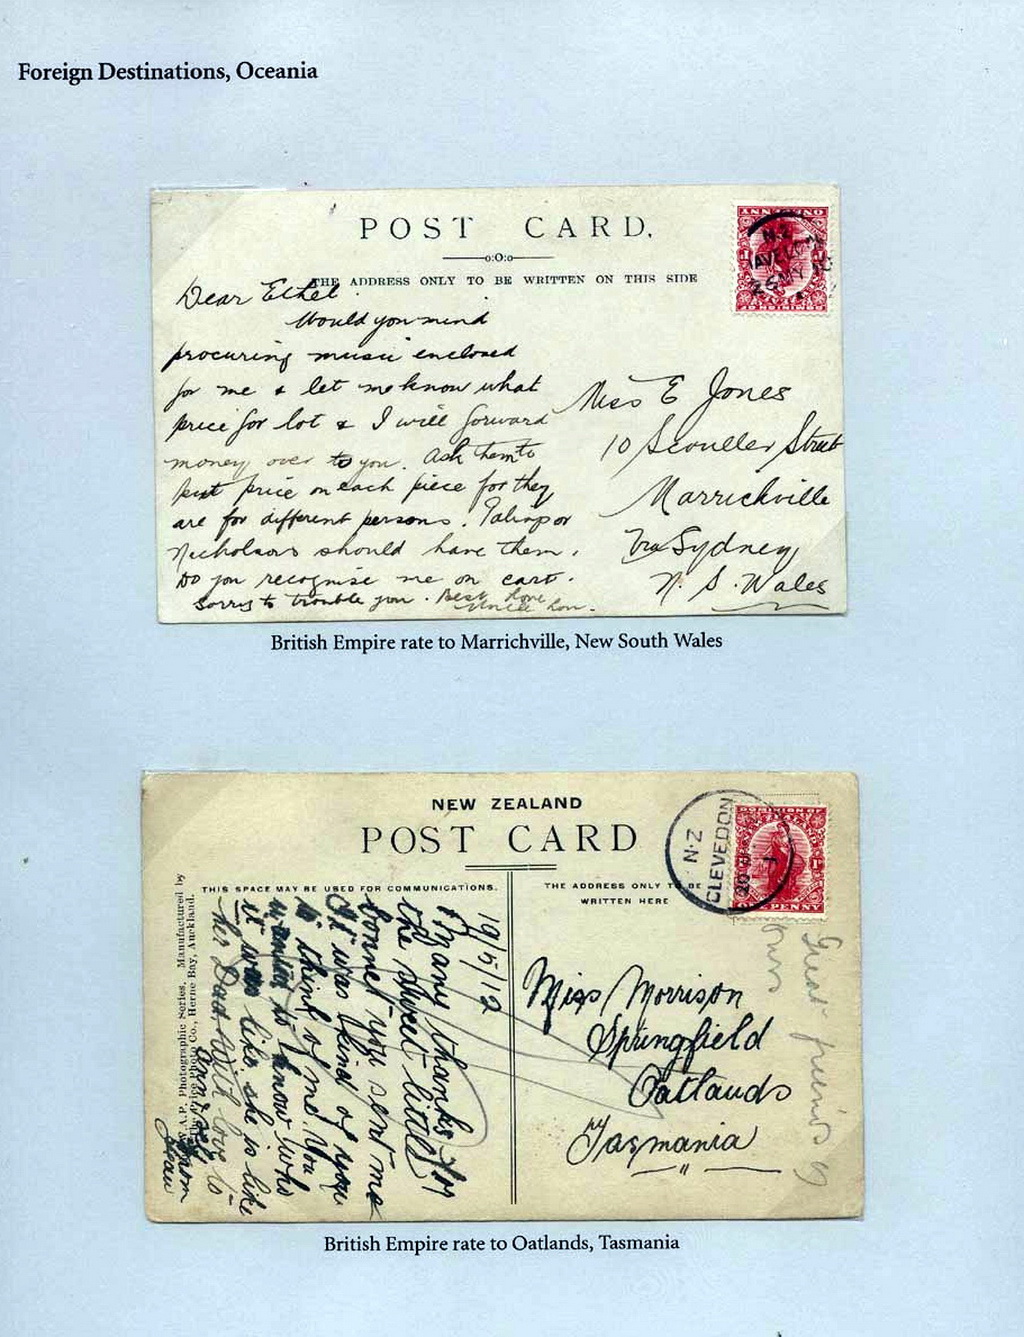 Foreign Destinations, Oceania
POST CARD.
THE ADDRESS ONLY TO BE WRITTEN ON THIS SIDE
N.Z
25 MY
Dear Ethel
Would you mind
procuring music enclosed
for me & let me know what
price for lot & I will forward
money over to you. Ask them to
put price on each piece for they
are for different persons. or
Nicholsons should have them.
Do you recognise me on card.
Sorry to trouble you. Best love
Miss E Jones
10 Scouller Street
Marrickville
Via Sydney
N. S. Wales
British Empire rate to Marrichville, New South Wales
NEW ZEALAND
POST CARD
THIS SPACE MAY BE USED FOR COMMUNICATIONS.
THE ADDRESS ONLY TO BE
WRITTEN HERE
N.Z
CLEVEDON
DOMINION OF
ONE PENNY
F.A.P. Photographic Series. Manufactured by
The Price Photo Co., Herne Bay, Auckland.
19/5/12
Many thanks for
the sweet little
bonnet you sent me
It was kind of you
to think of me. You
to know who
it was like she is like
her Dad With love to
Miss Morrison
Springfield
Oatlands
Tasmania
Great friends of
ours
British Empire rate to Oatlands, Tasmania